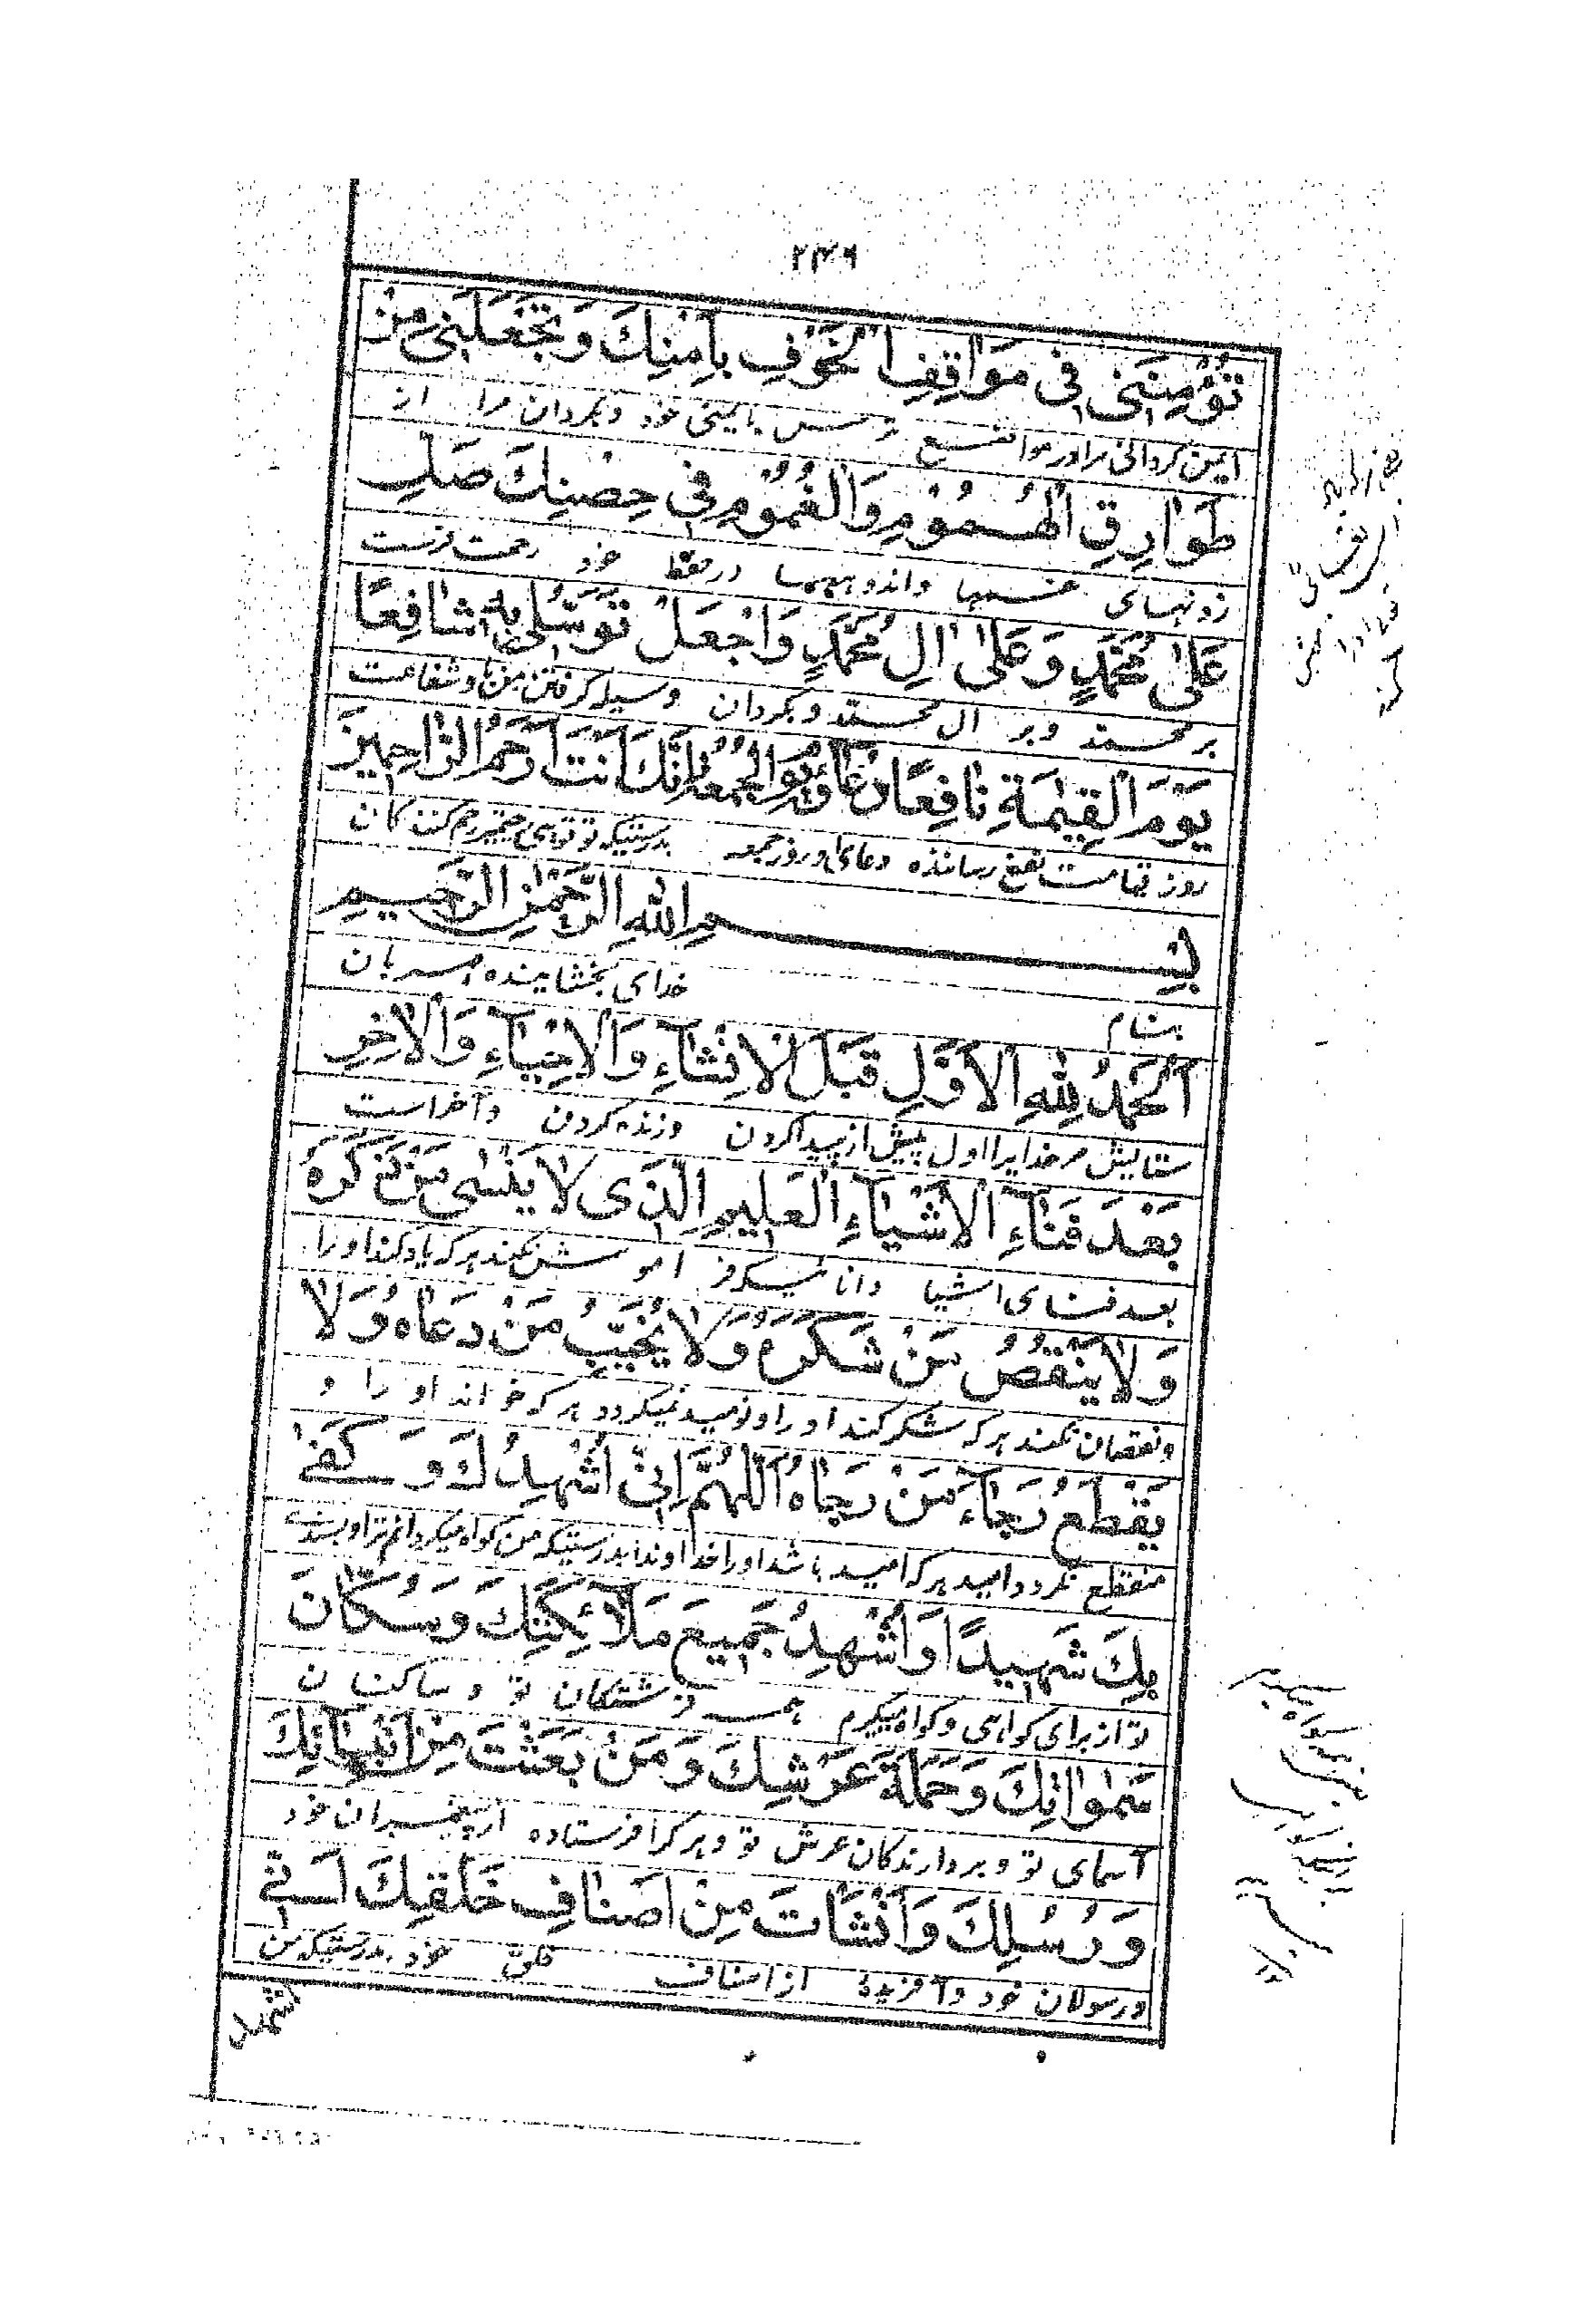 ۲۳۶
تُؤْمِنَنی فی مَوَاقِفِ الْخَوْفِ بِاَمْنِكَ وَتَجْعَلَنی مِنْ
ایمن گردانی مرا در مواضع ترس بایمنی خود و بگردان مرا از
طَوَارِقِ الْهُمُوْمِ وَالْغُمُوْمِ فِی حِصْنِكَ صَلِّ
غمها و اندوهها در حفظ خود رحمت فرست
عَلٰی مُحَمَّدٍ وَعَلٰی اٰلِ مُحَمَّدٍ وَاجْعَلْ تَوَسُّلی بِهٖ شَافِعًا
بر محمد و بر ال محمد و بگردان وسیله گرفتن من باو شفاعت
يَوْمَ الْقِيٰمَةِ نَافِعًا دُعَاءُ يَوْمِ الْجُمُعَةِ اِنَّكَ اَنْتَ اَرْحَمُ الرَّاحِمِيْنَ
روز قیامت نفع رساننده دعای روز جمعه بدرستیکه تو توئی رحم کنندگان
بِسْمِ اللهِ الرَّحْمٰنِ الرَّحِيمِ
بنام خدای بخشاینده مهربان
اَلْحَمْدُ لِلّٰهِ الْاَوَّلِ قَبْلَ الْاِنْشَاءِ وَالْاِحْيَاءِ وَالْاٰخِرِ
ستایش مر خدایرا اول پیش از پیدا کردن و زنده کردن و آخر است
بَعْدَ فَنَاءِ الْاَشْيَاءِ الْعَلِيمِ الَّذِی لَا يَنْسٰی مَنْ ذَكَرَهُ
بعد فنای اشیا دانائیکه فراموش نکند هر که یاد کند او را
وَلَا يَنْقُصُ مَنْ شَكَرَهُ وَلَا يُخَيِّبُ مَنْ دَعَاهُ وَلَا
و نقصان نکند هر که شکر کند او را و نومید نمیکردد هر که خواند او را و
يَقْطَعُ رَجَاءَ مَنْ رَجَاهُ اَللّٰهُمَّ اِنِّی اُشْهِدُكَ وَكَفٰی
منقطع نکردد امید هر که امید باشد او را خداوندا بدرستیکه من گواه میگردانم ترا و بسنده
بِكَ شَهِيدًا وَاُشْهِدُ جَمِيعَ مَلَائِكَتِكَ وَسُكَّانَ
تو از برای کواهی و کواه میگیرم همه فرشتکان تو و ساکنان
سَمٰوَاتِكَ وَحَمَلَةَ عَرْشِكَ وَمَنْ بَعَثْتَ مِنْ اَنْبِيَائِكَ
آسمانی تو و بردارندکان عرش تو و هر کرا فرستاده از پیغمبران خود
وَرُسُلِكَ وَاَنْشَاْتَ مِنْ اَصْنَافِ خَلْقِكَ اَنِّی
و رسولان خود و آفریدهٔ از اصناف خلق خود بدرستیکه من
اشهد